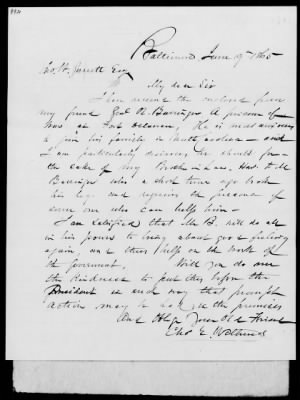 Baltimore June 9th 1865
My dear Sir
I have received the enclosed from
my friend Genl R. Barringer A prisoner of
war at Fort Delaware. He is most anxious
to join his family in North Carolina - and
I am particularly desirous he should for
the sake of my Brother in Law
Barringer who a short time ago broke
his leg and requires the presence of
some one who can help him -
I am satisfied that Mr B. will do all
in his power to bring about good feeling
again and otherwise help in the work of
the government. Will you do me
the kindness to put this before the
President in such way that prompt
action may be had in the premises
And Oblige Your Old Friend
Chs E.